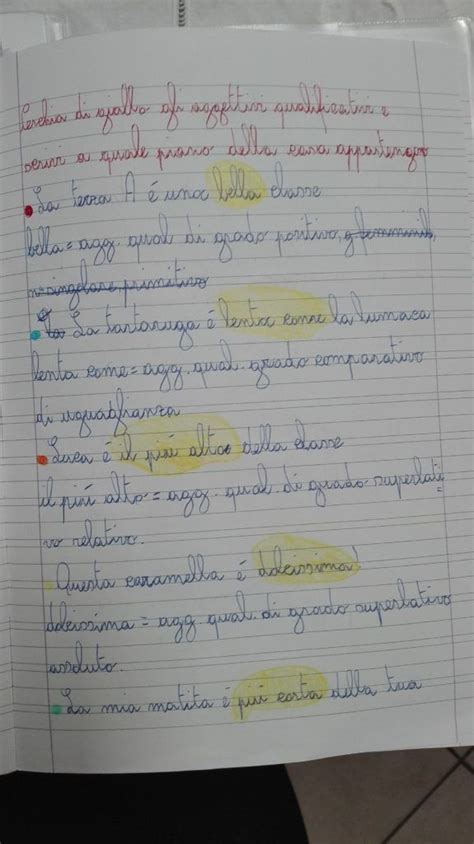 Cerchia di giallo gli aggettivi qualificativi e
scrivi a quale piano della casa appartengo
La terza A é una bella classe
bella = agg. qual. di grado positivo, g femminile,
n singolare, primitivo
La La tartaruga é lenta come la lumaca
lenta come = agg. qual. grado comparativo
di uguaglianza
Luca é il piú alto della classe
il piú alto = agg. qual. di grado superlati
vo relativo.
Questa caramella é dolcissima!
dolcissima = agg. qual. di grado superlativo
assoluto.
La mia matita é piú corta della tua